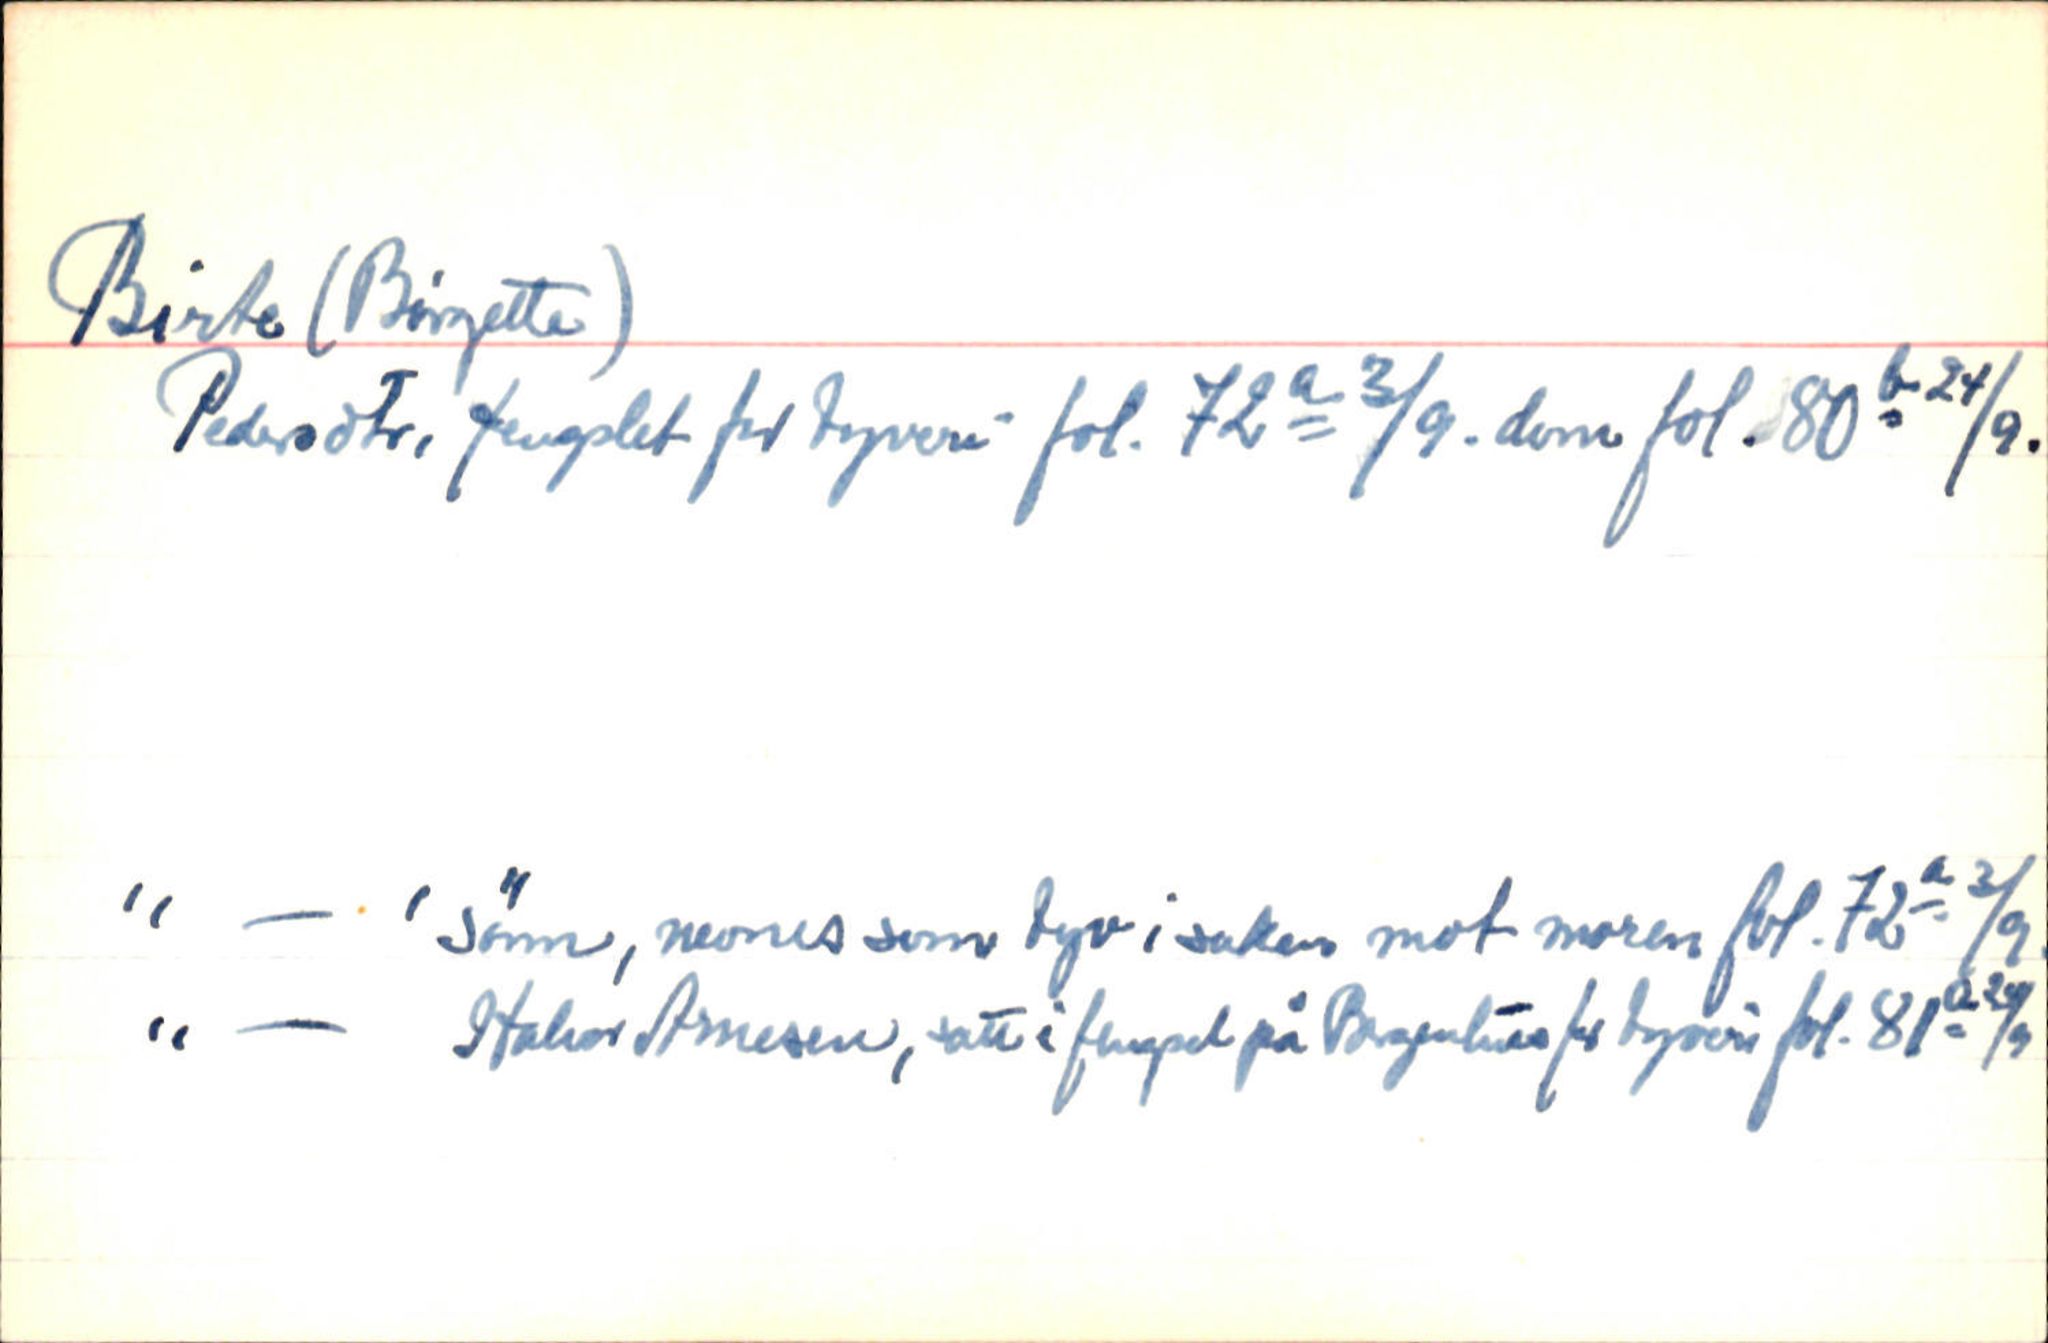 Birte (Birgette)
Pedersdtr, fengslet for tyveri fol. 72a 3/9. dom fol. 80b 24/9.
" — ' sönn, nevnes som tyv i saken mot moren fol. 72a 3/9.
" — Halvor Arnesen, satt i fengsel på Bergenhus for tyveri fol. 81a 24/9